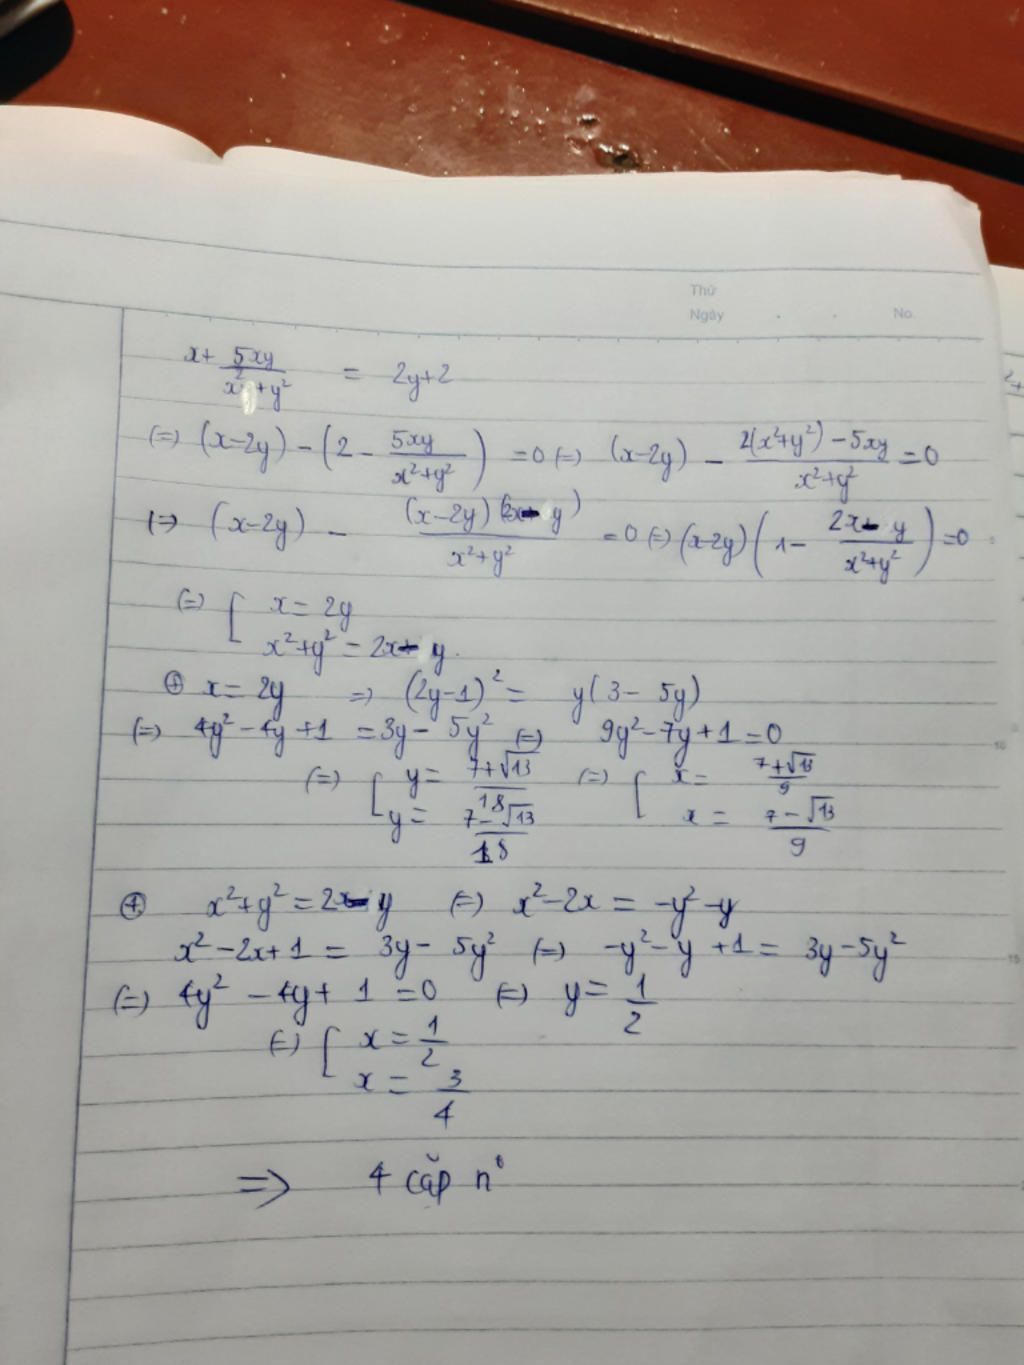 Thứ
Ngày . . No.
x + 5xy/(x²+y²) = 2y+2
(=) (x-2y) - (2 - 5xy/(x²+y²)) = 0 (=) (x-2y) - (2(x²+y²) - 5xy)/(x²+y²) = 0
(=) (x-2y) - (x-2y)(2x- y)/(x²+y²) = 0 (=) (x-2y)(1 - (2x- y)/(x²+y²)) = 0
(=) [ x = 2y
x²+y² = 2x- y.
⊕ x = 2y => (2y-1)² = y(3 - 5y)
(=) 4y² - 4y + 1 = 3y - 5y² (=) 9y² - 7y + 1 = 0
(=) [ y = (7+√13)/18 (=) [ x = (7+√13)/9
y = (7-√13)/18 x = (7-√13)/9
⊕ x²+y² = 2x- y (=) x² - 2x = -y² - y
x² - 2x + 1 = 3y - 5y² (=) -y² - y + 1 = 3y - 5y²
(=) 4y² - 4y + 1 = 0 (=) y = 1/2
(=) [ x = 1/2
x = 3/4
=> 4 cặp n⁰